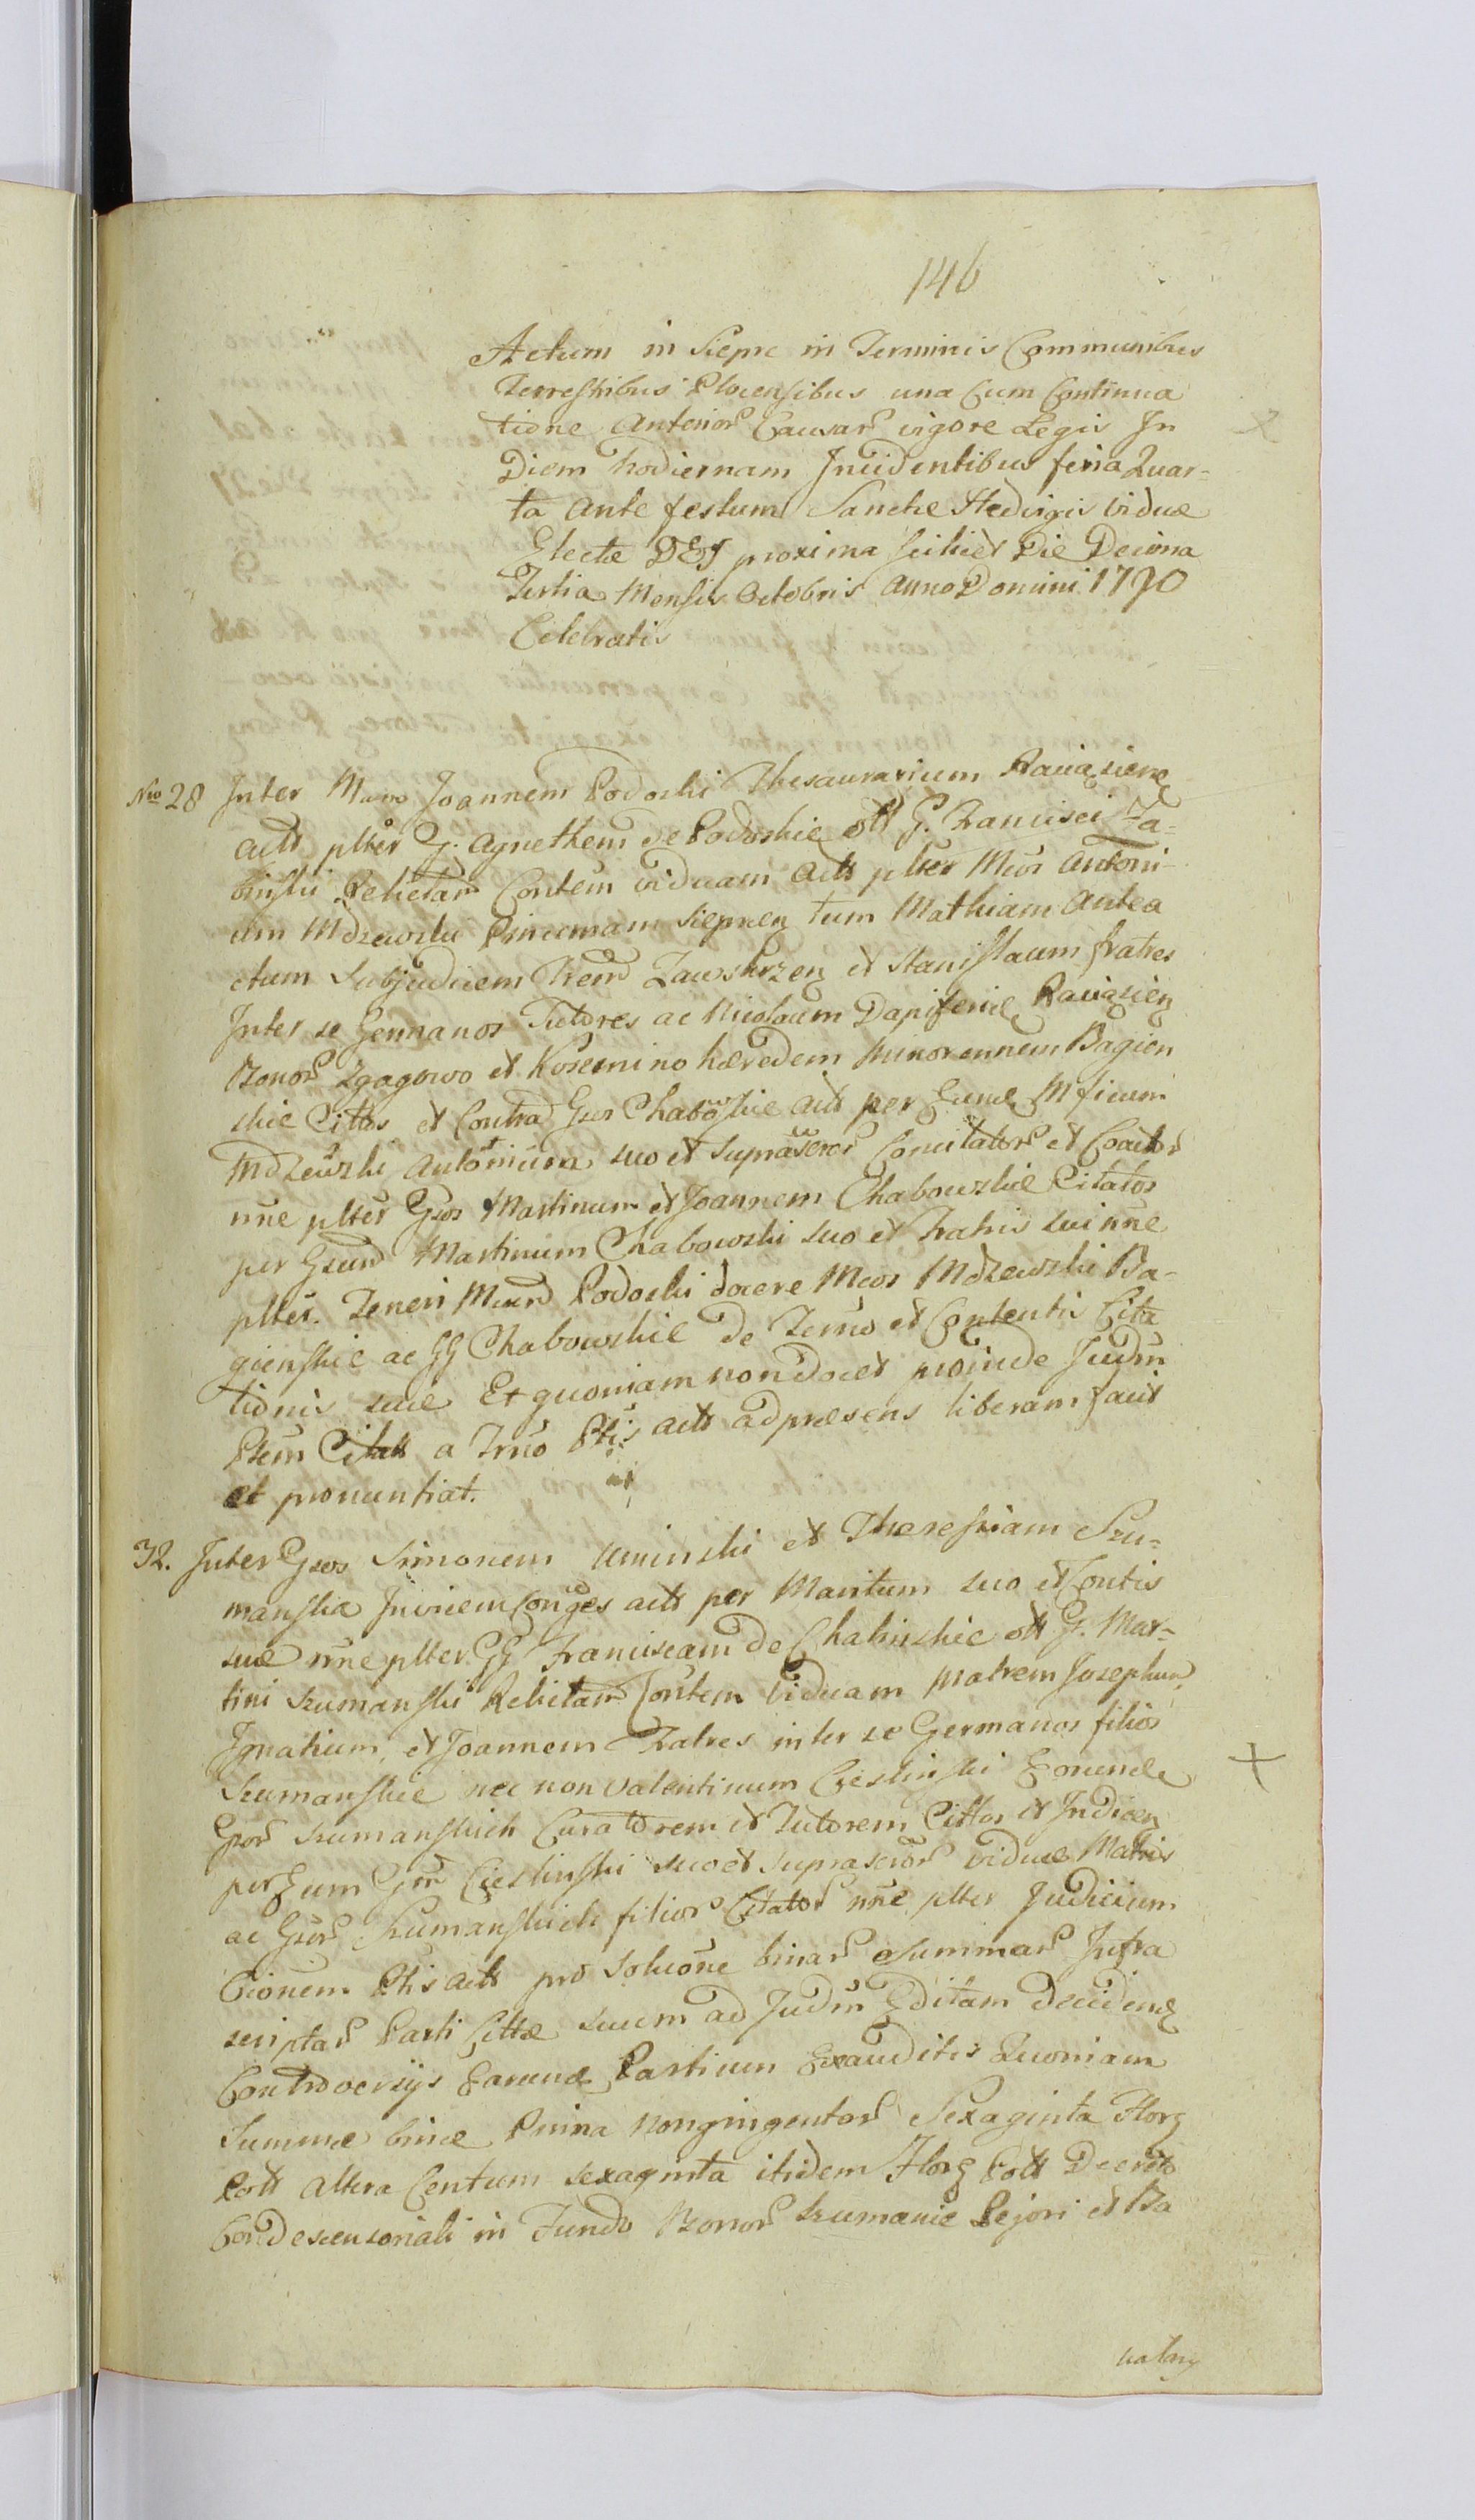 146
Actum in Siepre in Terminis Communibus
Terrestribus Plocensibus una Cum Continua
tione Anterior Causar vigore Legis In
Diem hodiernam Incidentibus feria Quar-
ta ante festum Sanctæ Hedvigis viduæ
Electæ DEI proxima scilicet Die Decima
Tertia Mensis Octobris Anno Domini 1790
Celebratis
Nro 28 Inter Joannem Podoski Thesaurarium
act plter G. Agnethem de Podoskie olt G. Francisci Za-
binski Relictam viduam act plter Mcos Antoni-
um Mdzewski Pincernam Siepren tum Mathiam Antea
ctum Subjudicem Zawskrzen et Stanislaum fratres
Inter se Germanos Tutores ac Nicolaum
Bonor Zgagowo et Kosemino hæredem Minorennem Bagien
skie Cittos et Contra Gsos Chabowskie act per Mficum
Mdzewski Antonium suo et Suprascr Concitator et Coactor
nne plter Gsos Martinum et Joannem Chabowskie Citatos
per Gsum Martinum Chabowski suo et Fratris sui nne
plter. Teneri Podoski docere Mcos Mdzewski Ba-
gienskie ac GG Chabowskie De Termo et Contentis Cita
tionis suæ Et quoniam non Docet proinde Judm
Citatt a Trno Ptis act ad præsens liberam facit
et pronuntiat.
32. Inter Gsos Simonem Uminski et Theressiam Szu-
manska Invicem Conges act per Maritum suo et Contis
suæ nne plter GG Franciscam de Chalinskie olt G. Mar-
tini Szumanski Relictam viduam Matrem Josephum,
Ignatium, et Joannem Fratres inter se Germanos filios
Szumanskie nec non Valentinum Cieslinski
Gsor Szumanskich Curatorem et Tutorem Cittos et
per Eum Cieslinski suo et suprascr viduæ Matris
ac Gsor Szumanskich filior Citator nne plter Judicium
Ptis act pro Solutne binar Summar Infra
scriptar Parti Cittæ suum ad Judm Editam
Controversijs Partium Exauditis Quoniam
Summæ binæ Prima Nongingentor Sexaginta Flor
Poll altera Centum sexaginta itidem Flor Poll Decreto
Condescensoriali in Fundo Bonor Szumanie Pejori et Ba